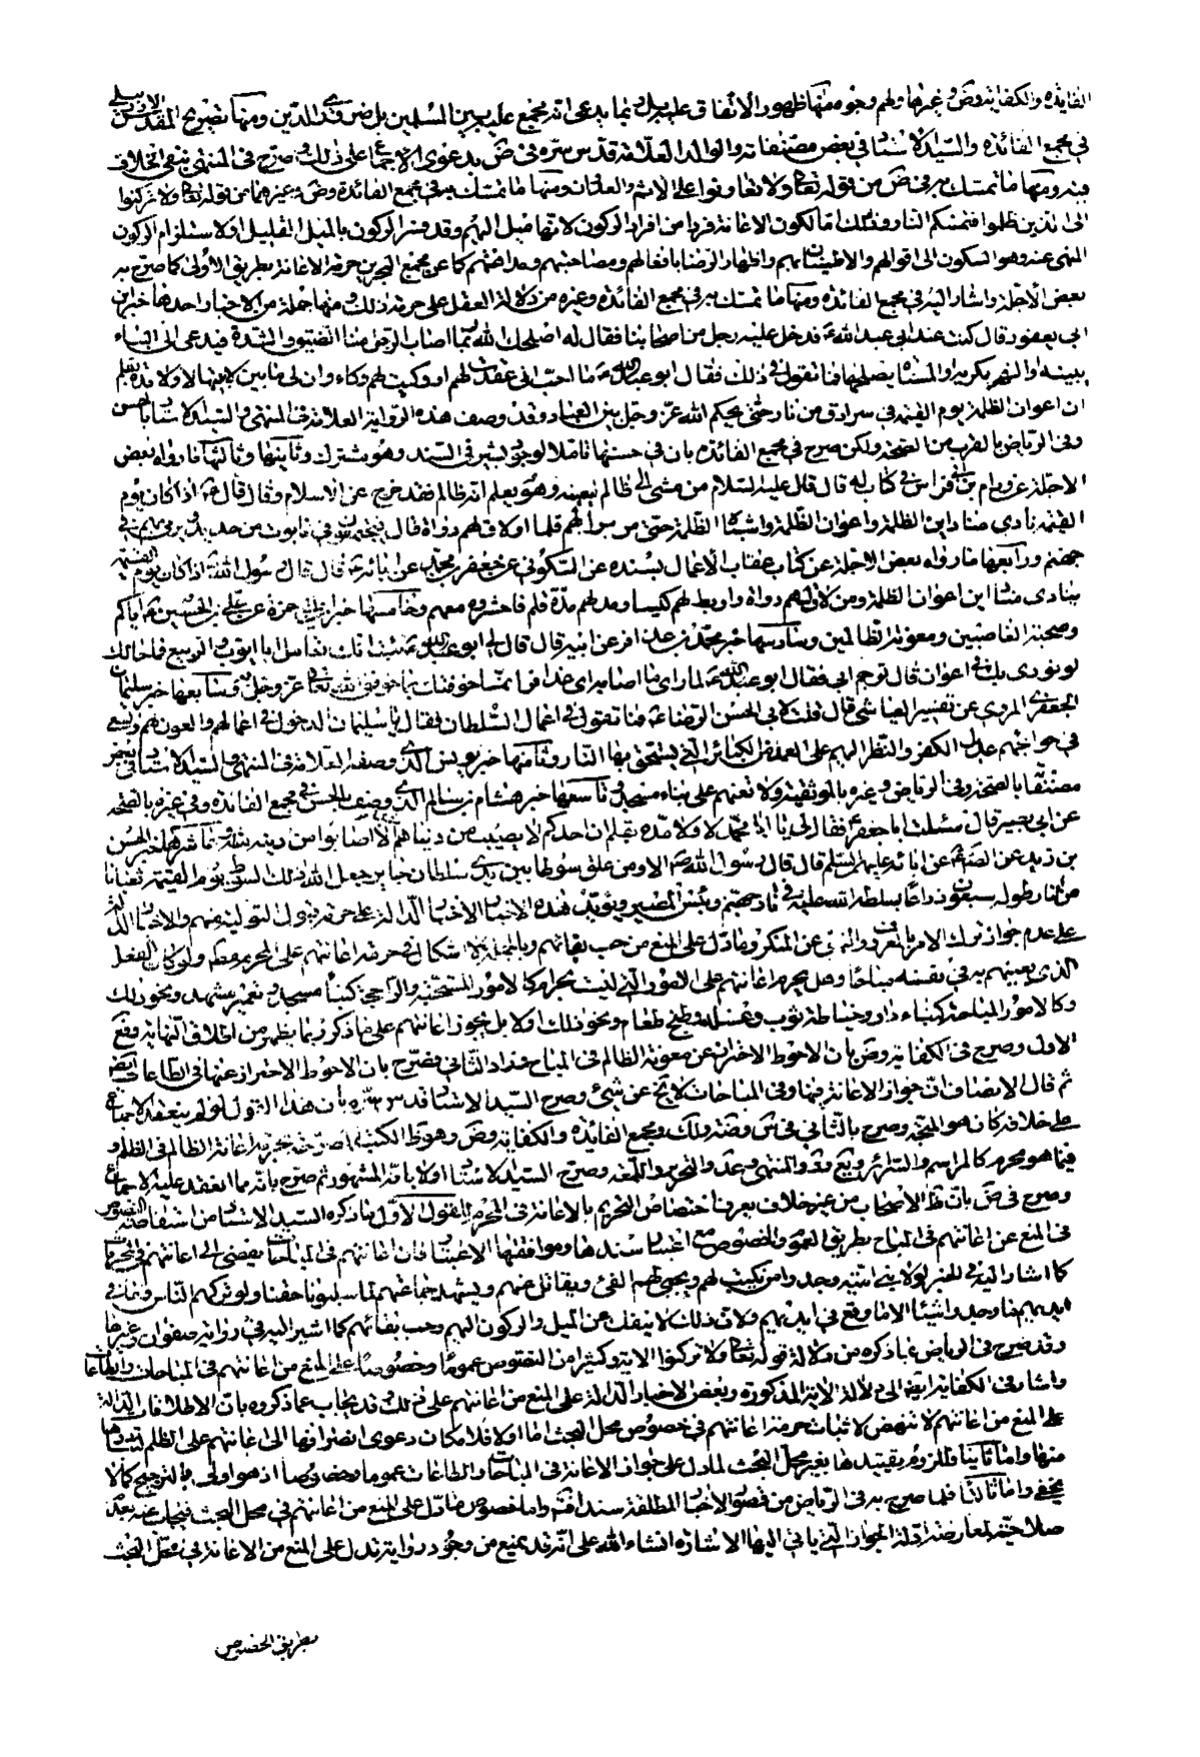 الفائدة والكفاية وض وغيرها ولهم وجوه منها ظهور الاتفاق عليه بل ربما يدعى انه مجمع عليه بين المسلمين بل ضروري الدين ومنها تصريح المقدس الاردبيلي
في مجمع الفائدة والسيد الاستاد في بعض مصنفاته والوالد العلامة قدس سره في ض بدعوى الاجماع على ذلك وصرح في المنتهى بنفي الخلاف
فيه ومنها ما تمسك به في ض من قوله تعالى ولا تعاونوا على الاثم والعدوان ومنها ما تمسك به في مجمع الفائدة وض وغيرهما من قوله تعالى ولا تركنوا
الى الذين ظلموا فتمسكم النار وذلك اما لكون الاعانة فردا من افراد الركون لانها ميل اليهم وقد فسر الركون بالميل القليل او لاستلزام الركون
المنهى عنه وهو السكون الى اقوالهم والاطمينان بهم واظهار الرضا بافعالهم ومصاحبتهم ومداهنتهم كما عن مجمع البحرين حرمة الاعانة بطريق الاولى كما صرح به
بعض الاجلة واشار اليه في مجمع الفائدة ومنها ما تمسك به في مجمع الفائدة وغيره من دلالة العقل على حرمة ذلك ومنها جملة من الاخبار احدها خبر ابن
ابي يعفور قال كنت عند ابي عبد الله ع قد دخل عليه رجل من اصحابنا فقال له اصلحك الله ربما اصاب الرجل منا الضيق والشدة فيدعى الى البناء
يبنيه او النهر يكريه او المسناة يصلحها فما تقول في ذلك فقال ابو عبد الله ع ما احب اني عقدت لهم او وكيت لهم وكاء وان لي ما بين لابتيها لا ولا مدة بقلم
ان اعوان الظلمة يوم القيمة في سرادق من نار حتى يحكم الله عز وجل بين العباد وقد وصف هذه الرواية العلامة في المنتهى والسيد الاستاد بالحسن
وفي الرياض بالقرب من الصحة ولكن صرح في مجمع الفائدة بان في حسنها تاملا لوجود بشير في السند وهو مشترك وثانيها وثالثها ما رواه بعض
الاجلة عن ورام بن ابي فراس في كتاب له قال قال عليه السلام من مشى الى ظالم ليعينه وهو يعلم انه ظالم فقد خرج عن الاسلام وقال قال ع اذا كان يوم
القيمة نادى مناد اين الظلمة واعوان الظلمة واشباه الظلمة حتى من برا لهم قلما او لاق لهم دواة قال فيجتمعون في تابوت من حديد ثم يرمى بهم في
جهنم ورابعها ما رواه بعض الاجلة عن كتاب عقاب الاعمال بسنده عن السكوني عن جعفر بن محمد عن ابائه ع قال قال رسول الله ص اذا كان يوم القيمة
ينادى مناد اين اعوان الظلمة ومن لاق لهم دواة او ربط لهم كيسا او مد لهم مدة قلم فاحشروه معهم وخامسها خبر ابي حمزة عن علي بن الحسين ع اياكم
وصحبة العاصين ومعونة الظالمين وسادسها خبر محمد بن عذافر عن ابيه قال قال لي ابو عبد الله ع نبئت انك تعامل ابا ايوب والربيع فما حالك
لو نودي بك في اعوان قال فوجم ابي فقال ابو عبد الله ع لما راى ما اصابه اي عذافر انما خوفتك بما خوفني الله تعالى عز وجل به وسابعها خبر سليمان
الجعفري المروي عن تفسير العياشي قال قلت لابي الحسن الرضا ع ما تقول في اعمال السلطان فقال يا سليمان الدخول في اعمالهم والعون لهم والسعي
في حوائجهم عديل الكفر والنظر اليهم على العمد من الكبائر التي يستحق بها النار وثامنها خبر يونس الذي وصفه العلامة في المنتهى والسيد الاستاد في بعض
مصنفاته بالصحة وفي الرياض وغيره بالموثقية ولا تعنهم على بناء مسجد وتاسعها خبر هشام بن سالم الذي وصف بالحسن في مجمع الفائدة وفي غيره بالصحة
عن ابي بصير قال سئلت ابا جعفر ع فقال لي يا ابا محمد لا ولا مدة بقلم ان احدكم لا يصيب من دنياهم الا اصابوا من دينه مثله وعاشرها خبر الحسين
بن زيد عن الصادق ع عن ابائه عليهم السلم قال قال رسول الله ص الا ومن علق سوطا بين يدي سلطان جاير جعل الله ذلك السوط يوم القيمة ثعبانا
من نار طوله سبعون ذراعا يسلطه الله عليه في نار جهنم وبئس المصير ويؤيد هذه الاخبار الاخبار الدالة على حرمة قبول التولية منهم والاخبار الدالة
على عدم جواز ترك الامر بالمعروف والنهي عن المنكر وما دل على المنع من حب بقائهم وبالجملة لا اشكال في حرمة اعانتهم على المحرم مطلقا ولو كان الفعل
الذي يعينهم به في نفسه مباحا وهل يحرم اعانتهم على الامور التي ليست بحرام كالامور المستحبة والراجحة كبناء مسجد وتعمير مشهد ونحو ذلك
وكالامور المباحة كبناء دار وخياطة ثوب وغسله وطبخ طعام ونحو ذلك او لا بل يجوز اعانتهم على ما ذكر ربما يظهر من اطلاق النهاية وقع
الاول وصرح في الكفاية وض بان الاحوط الاحتراز عن معونة الظالم في المباح وزاد الثاني فصرح بان الاحوط الاحتراز عنها في الطاعات ايضا
ثم قال الانصاف ان جواز الاعانة فيها وفي المباحات لا يخ عن شيء وصرح السيد الاستاد قدس سره بان هذا القول لو لم ينعقد الاجماع
على خلافه كان هو المتجه وصرح بالثاني في س وضة ولك ومجمع الفائدة والكفاية وض وهو ظ الكتب المصرحة بحرمة اعانة الظالم في الظلم او
فيما هو محرم كالمراسم والسرائر ويع وفع والمنتهى وعد والتحرير واللمعة وصرح السيد الاستاد اولا بانه المشهور ثم صرح بانه مما انعقد عليه الاجماع
وصرح في ض بان ظ الاصحاب من غير خلاف يعرف اختصاص التحريم بالاعانة في المحرم للقول الاول ما ذكره السيد الاستاد من استفاضة النصوص
في المنع عن اعانتهم في المباح بطريق العموم والخصوص مع اعتبار سندها وموافقتها الاعتبار فان اعانتهم في المباحات يفضى الى اعانتهم في المحرمات
كما اشار اليه في الخبر لولا بني امية وجدوا من يكتب لهم ويجبى لهم الفيء ويقاتل عنهم ويشهد جماعتهم لما سلبونا حقنا ولو تركهم الناس وما في
ايديهم ما وجدوا شيئا الا ما وقع في ايديهم ولان ذلك لا ينفك عن الميل والركون اليهم وحب بقائهم كما اشير اليه في رواية صفوان وغيرها
وقد صرح في الرياض بما ذكره من دلالة قوله تعالى ولا تركنوا الاية وكثير من النصوص عموما وخصوصا على المنع من اعانتهم في المباحات والطاعات
واشار في الكفاية ايضا الى دلالة الاية المذكورة وبعض الاخبار الدالة على المنع من اعانتهم على ذلك وقد يجاب عما ذكروه بان الاطلاقات الدالة
على المنع من اعانتهم لا تنهض لاثبات حرمة اعانتهم في خصوص محل البحث اما اولا فلامكان دعوى انصرافها الى اعانتهم على الظلم لتبادرها
منها واما ثانيا فللزوم تقييدها بغير محل البحث لما دل على جواز الاعانة في المباحات والطاعات عموما وخصوصا اذ هو اولى بالترجيح كما لا
يخفى واما ثالثا فلما صرح به في الرياض من قصور الاخبار المطلقة سندا فتم واما خصوص ما دل على المنع من اعانتهم في محل البحث فيجاب عنه بعدم
صلاحيته لمعارضة ادلة الجواز التي ياتي اليها الاشارة انشاء الله على انه قد يمنع من وجود رواية تدل على المنع من الاعانة في محل البحث
بطريق الخصوص